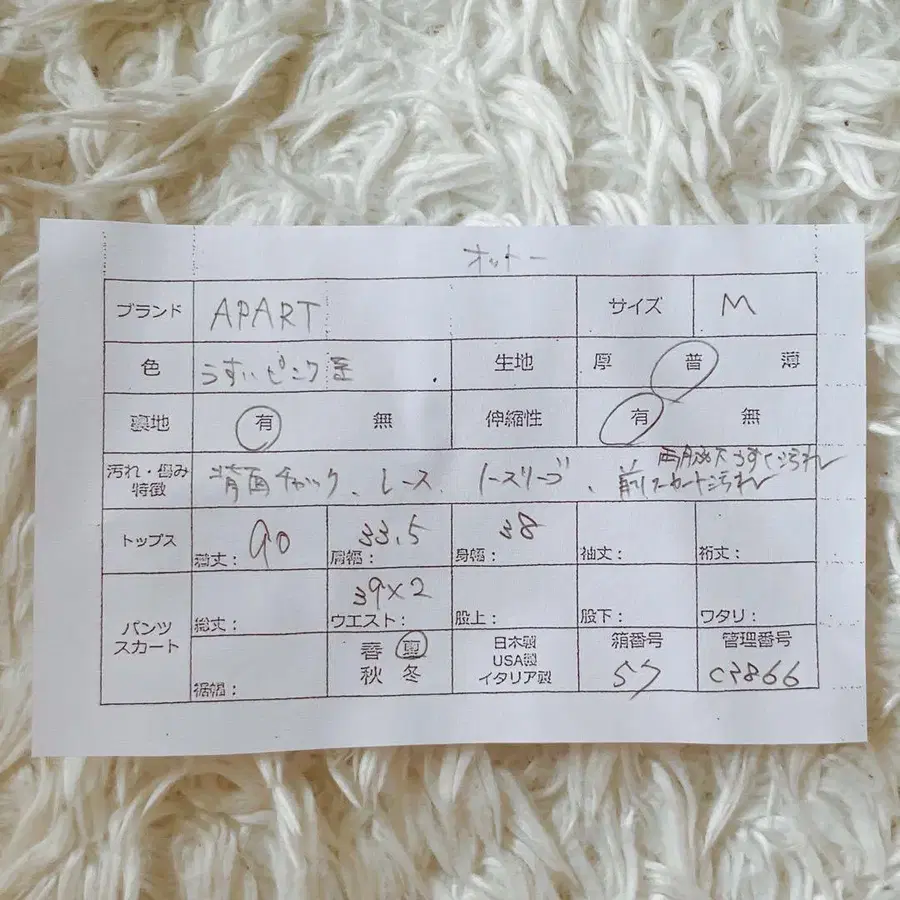 オットー
ブランド APART サイズ M
色 うすいピンク 生地 厚 普 薄
裏地 有 無 伸縮性 有 無
両脇 うすく汚れ
汚れ・傷み 特徴 背面チャック、レース、ノースリーブ、前スカート汚れ
トップス 着丈: 90 肩幅: 33.5 身幅: 38 袖丈: 裄丈:
パンツ スカート 総丈: ウエスト: 39×2 股上: 股下: ワタリ:
裾幅: 春 夏 秋 冬 日本製 USA製 イタリア製 箱番号 57 管理番号